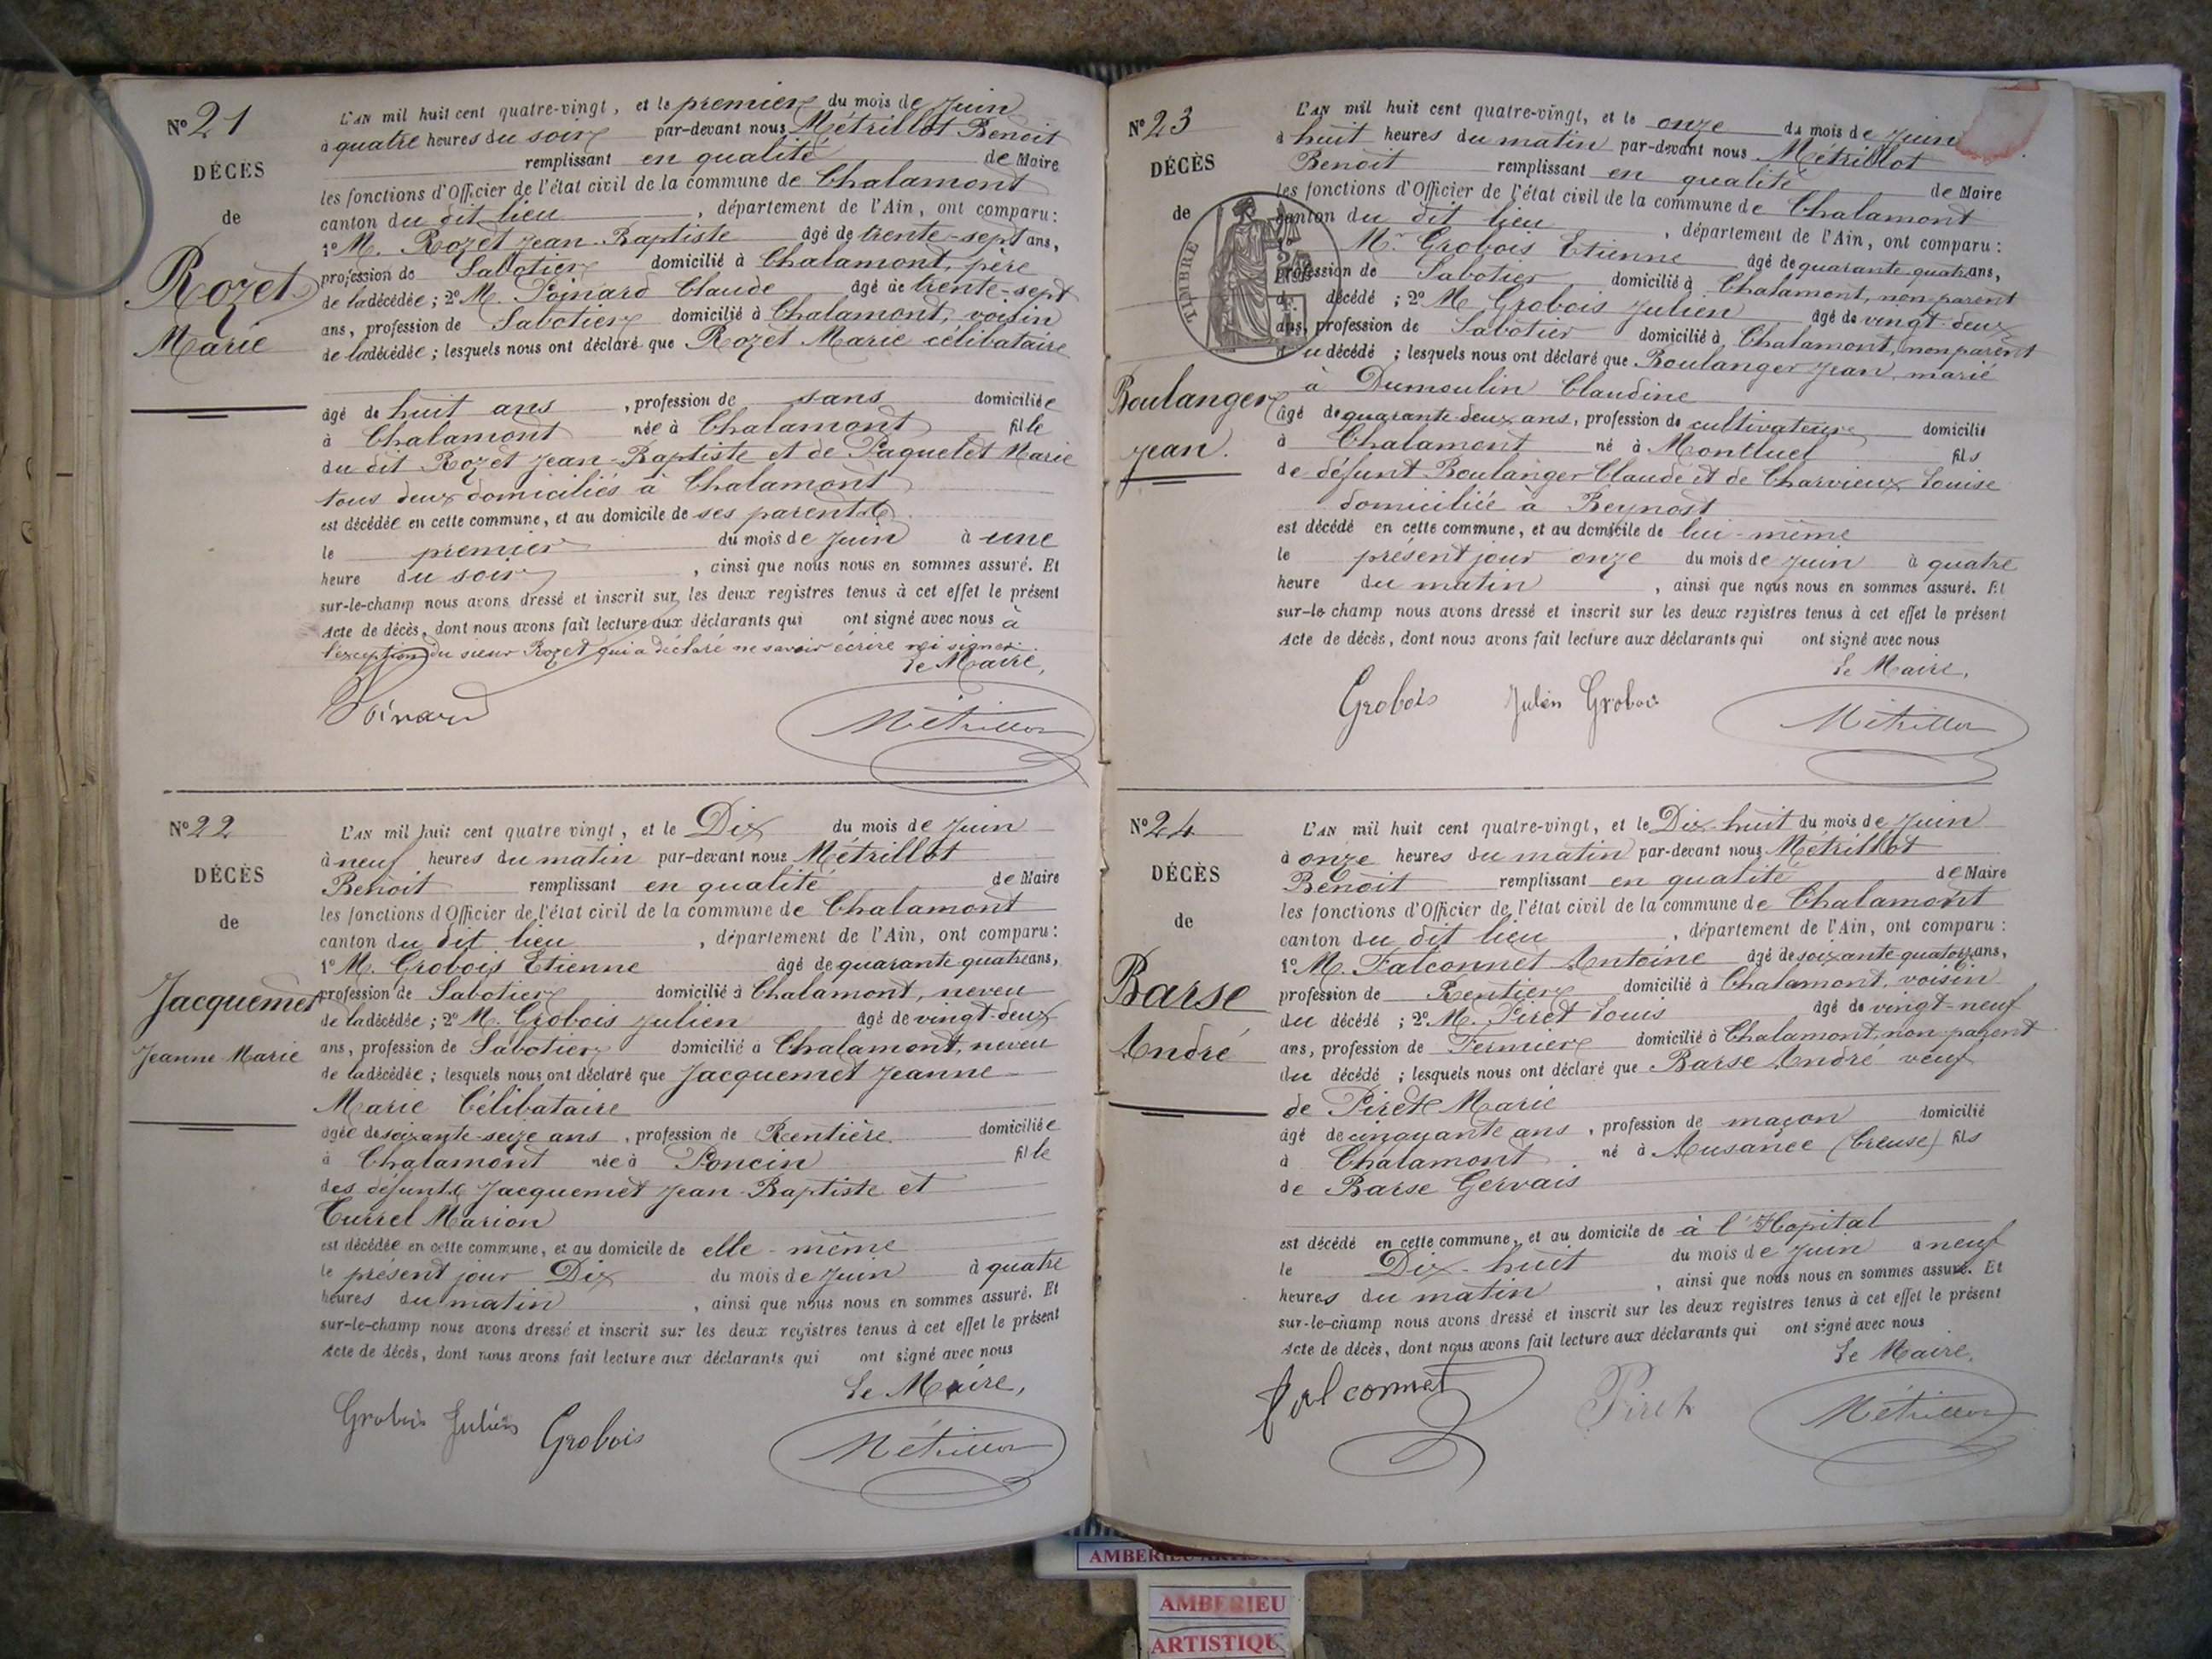 N° 21
DÉCÈS
de
Rozet
Marie
L'AN mil huit cent quatre-vingt, et le premier du mois de Juin
à quatre heures du soir par-devant nous Métrillot Benoit
remplissant en qualité de Maire
les fonctions d'Officier de l'état civil de la commune de Chalamont
canton du dit lieu, département de l'Ain, ont comparu:
1° M. Rozet Jean-Baptiste âgé de trente-sept ans,
profession de Sabotier domicilié à Chalamont, père
de la décédée; 2° M. Poinard Claude âgé de trente-sept
ans, profession de Sabotier domicilié à Chalamont, voisin
de la décédée; lesquels nous ont déclaré que Rozet Marie célibataire
âgé de huit ans, profession de sans domiciliée
à Chalamont née à Chalamont fille
du dit Rozet Jean-Baptiste et de Paquelet Marie
tous deux domiciliés à Chalamont
est décédée en cette commune, et au domicile de ses parents
le premier du mois de Juin à une
heure du soir, ainsi que nous nous en sommes assuré. Et
sur-le-champ nous avons dressé et inscrit sur les deux registres tenus à cet effet le présent
Acte de décès, dont nous avons fait lecture aux déclarants qui ont signé avec nous à
l'exception du sieur Rozet qui a déclaré ne savoir écrire ni signer.
Le Maire,
Poinard Métrillot
N° 22
DÉCÈS
de
Jacquemet
Jeanne Marie
L'AN mil huit cent quatre vingt, et le Dix du mois de Juin
à neuf heures du matin par-devant nous Métrillot
Benoit remplissant en qualité de Maire
les fonctions d'Officier de l'état civil de la commune de Chalamont
canton du dit lieu, département de l'Ain, ont comparu:
1° M. Grobois Etienne âgé de quarante quatre ans,
profession de Sabotier domicilié à Chalamont, neveu
de la décédée; 2° M. Grobois Julien âgé de vingt-deux
ans, profession de Sabotier domicilié à Chalamont, neveu
de la décédée; lesquels nous ont déclaré que Jacquemet Jeanne
Marie Célibataire
âgée de soixante-seize ans, profession de Rentière domiciliée
à Chalamont née à Poncin fille
des défunts Jacquemet Jean-Baptiste et
Currel Marion
est décédée en cette commune, et au domicile de elle-même
le présent jour Dix du mois de Juin à quatre
heures du matin, ainsi que nous nous en sommes assuré. Et
sur-le-champ nous avons dressé et inscrit sur les deux registres tenus à cet effet le présent
Acte de décès, dont nous avons fait lecture aux déclarants qui ont signé avec nous
Le Maire,
Grobois Julien Grobois Métrillot
N° 23
DÉCÈS
de
Boulanger
Jean.
TIMBRE
L'AN mil huit cent quatre-vingt, et le onze du mois de Juin
à huit heures du matin par-devant nous Métrillot
Benoit remplissant en qualité de Maire
les fonctions d'Officier de l'état civil de la commune de Chalamont
canton du dit lieu, département de l'Ain, ont comparu:
M. Grobois Etienne âgé de quarante quatre ans,
profession de Sabotier domicilié à Chalamont, non parent
du décédé; 2° M. Grobois Julien âgé de vingt-deux
ans, profession de Sabotier domicilié à Chalamont, non parent
du décédé; lesquels nous ont déclaré que Boulanger Jean, marié
à Dumoulin Claudine
âgé de quarante-deux ans, profession de cultivateur domicilié
à Chalamont né à Montluel fils
de défunt Boulanger Claude et de Charvieux Louise
domiciliée à Beynost
est décédé en cette commune, et au domicile de lui-même
le présent jour onze du mois de Juin à quatre
heure du matin, ainsi que nous nous en sommes assuré. Et
sur-le champ nous avons dressé et inscrit sur les deux registres tenus à cet effet le présent
Acte de décès, dont nous avons fait lecture aux déclarants qui ont signé avec nous
Le Maire,
Grobois Julien Grobois Métrillot
N° 24
DÉCÈS
de
Barse
André
L'AN mil huit cent quatre-vingt, et le Dix-huit du mois de Juin
à onze heures du matin par-devant nous Métrillot
Benoit remplissant en qualité de Maire
les fonctions d'Officier de l'état civil de la commune de Chalamont
canton du dit lieu, département de l'Ain, ont comparu:
1° M. Falconnet Antoine âgé de soixante quatorze ans,
profession de Rentier domicilié à Chalamont, voisin
du décédé; 2° M. Piret Louis âgé de vingt-neuf
ans, profession de Fermier domicilié à Chalamont, non parent
du décédé; lesquels nous ont déclaré que Barse André veuf
de Piret Marie
âgé de cinquante ans, profession de maçon domicilié
à Chalamont né à Ausance (Creuse) fils
de Barse Gervais
est décédé en cette commune, et au domicile de à l'Hopital
le Dix-huit du mois de Juin à neuf
heures du matin, ainsi que nous nous en sommes assuré. Et
sur-le-champ nous avons dressé et inscrit sur les deux registres tenus à cet effet le présent
Acte de décès, dont nous avons fait lecture aux déclarants qui ont signé avec nous
Le Maire.
Falconnet Piret Métrillot
AMBERIEU
AMBERIEU
ARTISTIQU